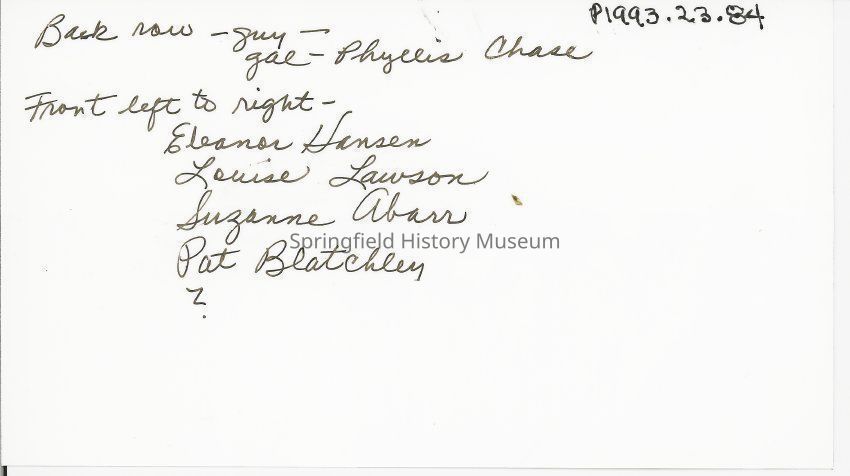 P1993.23.84
Back row - guy -
gal - Phyllis Chase
Front left to right -
Eleanor Hansen
Louise Lawson
Suzanne Abarr
Springfield History Museum
Pat Blatchley
?